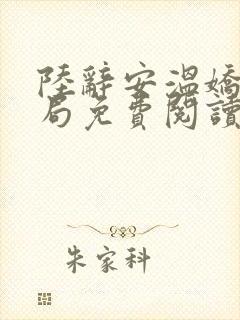 陸辭安溫嬌
局免費閱讀
朱家科